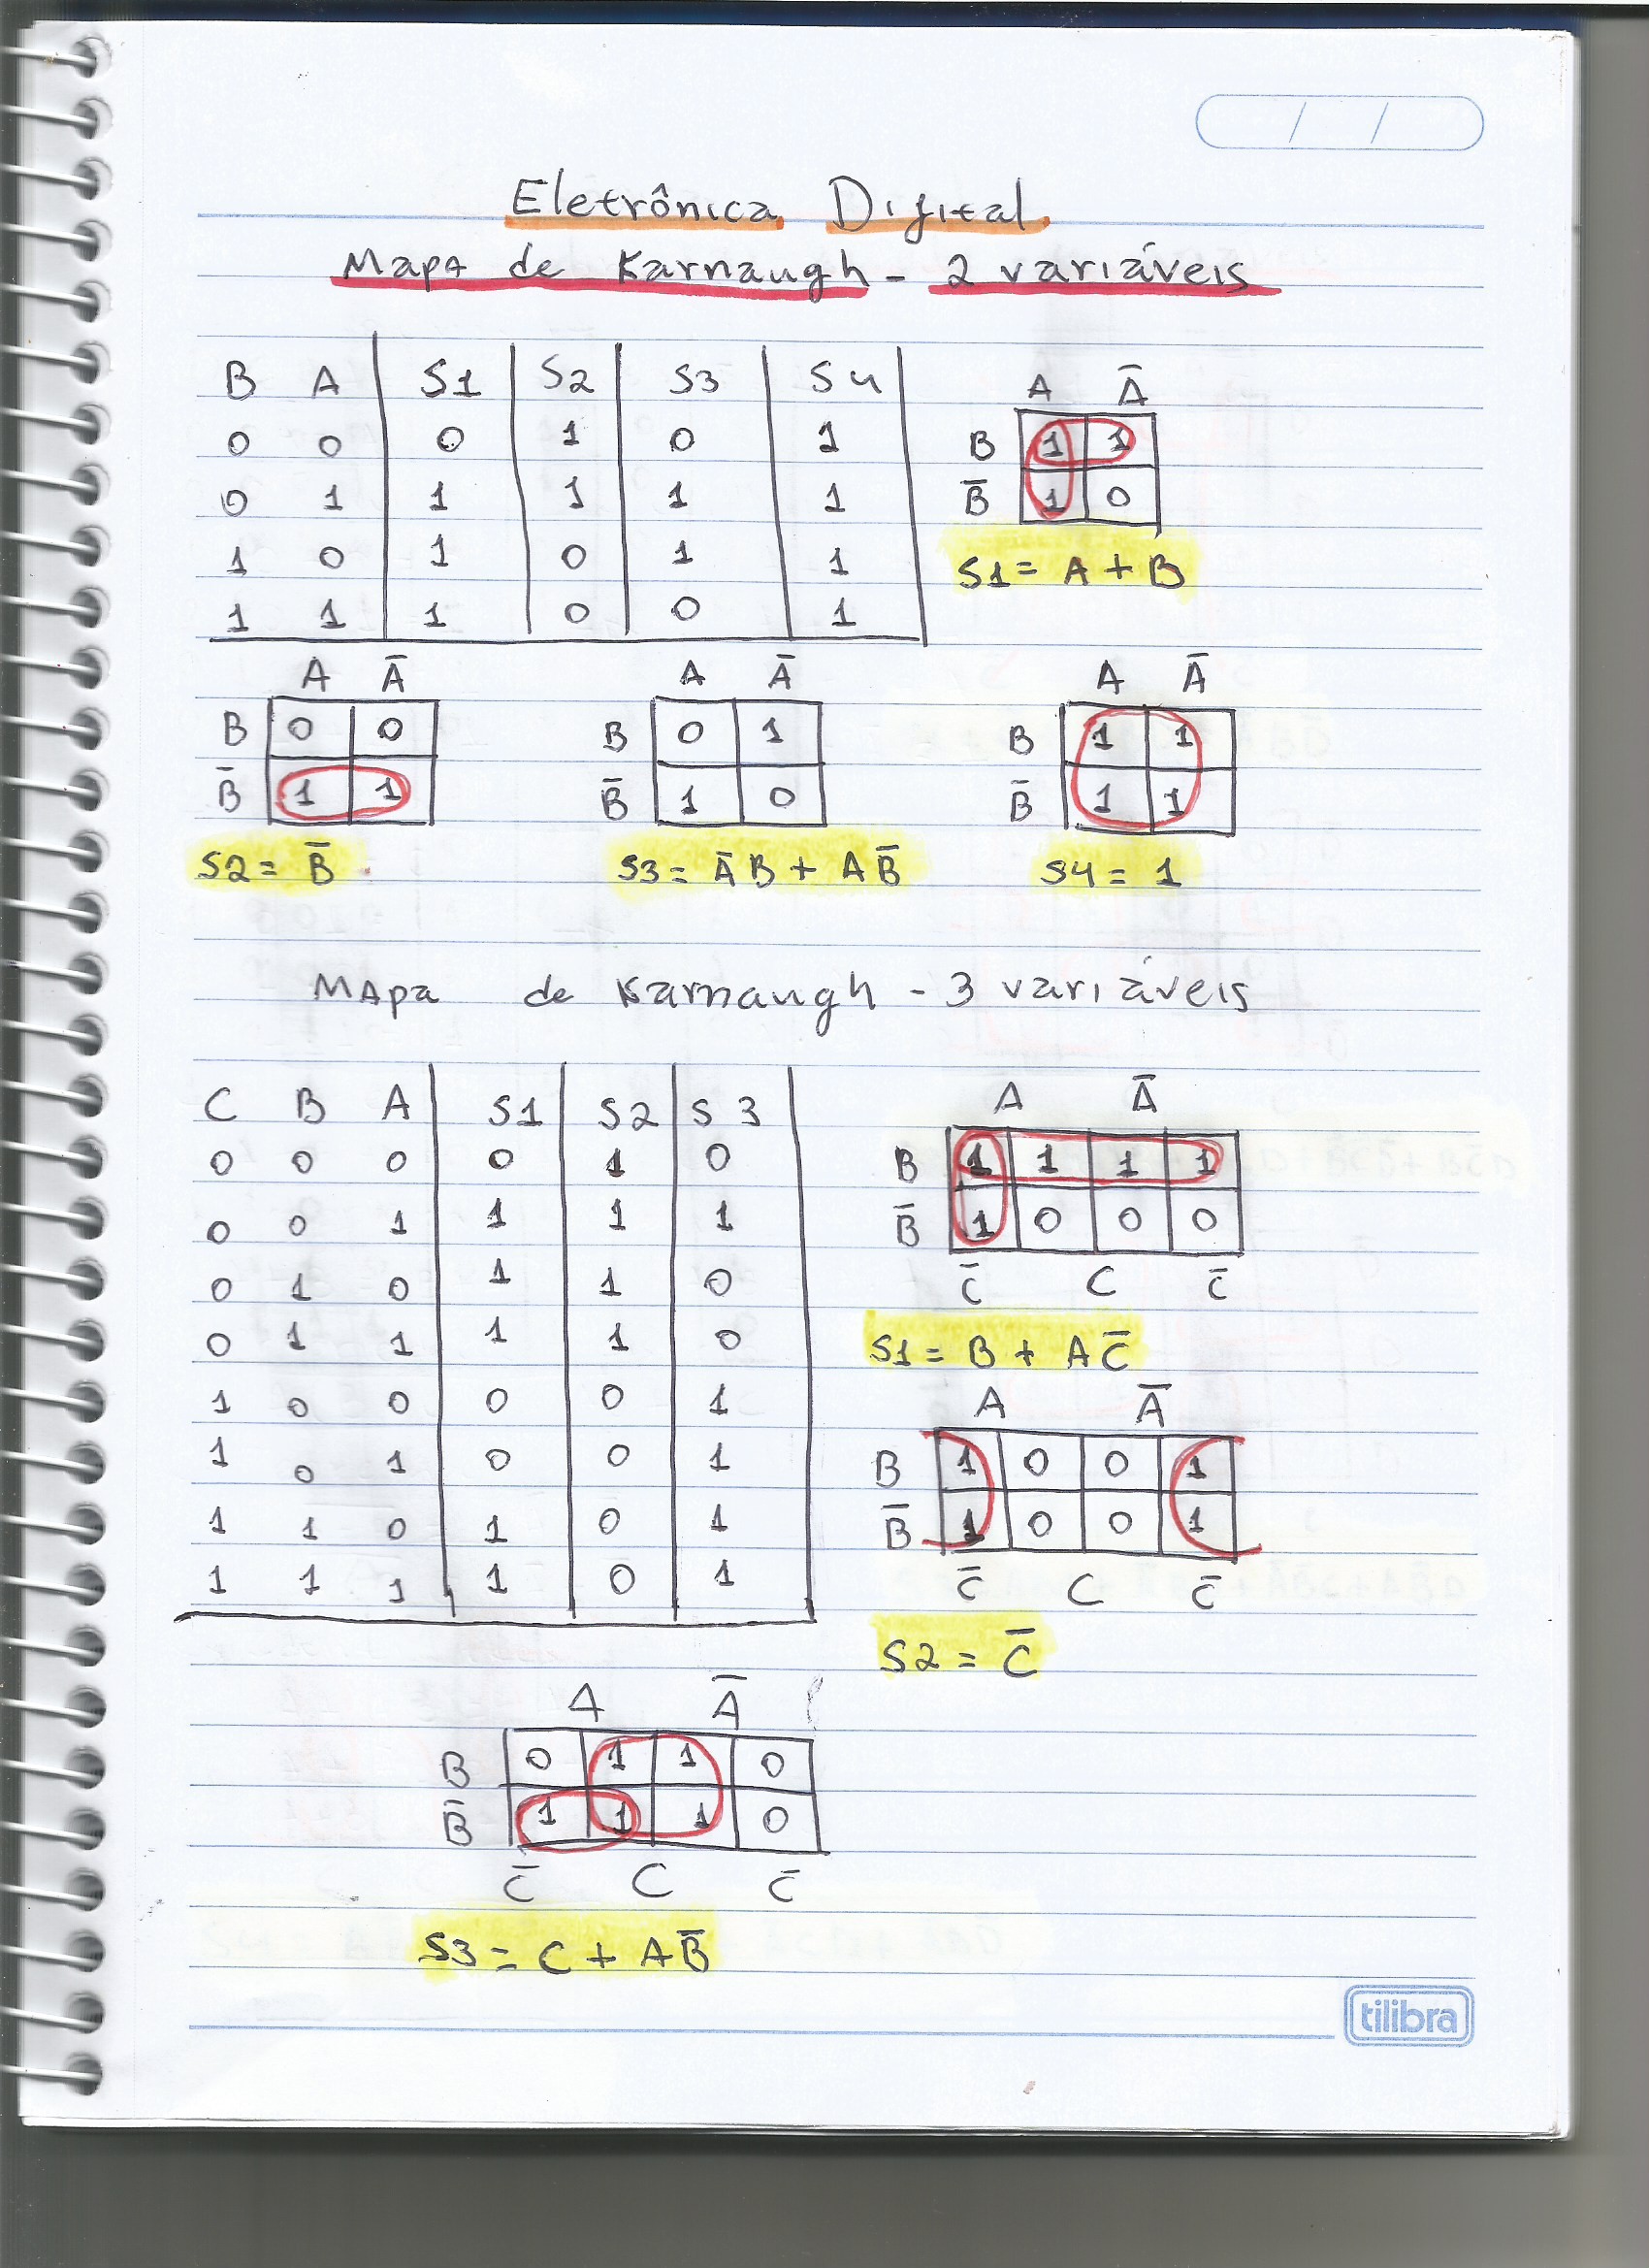 Eletrônica Digital
Mapa de Karnaugh - 2 variáveis
B A S1 S2 S3 S4
0 0 0 1 0 1
0 1 1 1 1 1
1 0 1 0 1 1
1 1 1 0 0 1
A Ā
B 1 1
B̄ 1 0
S1 = A + B
A Ā
B 0 0
B̄ 1 1
S2 = B̄
A Ā
B 0 1
B̄ 1 0
S3 = ĀB + AB̄
A Ā
B 1 1
B̄ 1 1
S4 = 1
Mapa de Karnaugh - 3 variáveis
C B A S1 S2 S3
0 0 0 0 1 0
0 0 1 1 1 1
0 1 0 1 1 0
0 1 1 1 1 0
1 0 0 0 0 1
1 0 1 0 0 1
1 1 0 1 0 1
1 1 1 1 0 1
A Ā
B 1 1 1 1
B̄ 1 0 0 0
C̄ C C̄
S1 = B + AC̄
A Ā
B 1 0 0 1
B̄ 1 0 0 1
C̄ C C̄
S2 = C̄
A Ā
B 0 1 1 0
B̄ 1 1 1 0
C̄ C C̄
S3 = C + AB̄
tilibra